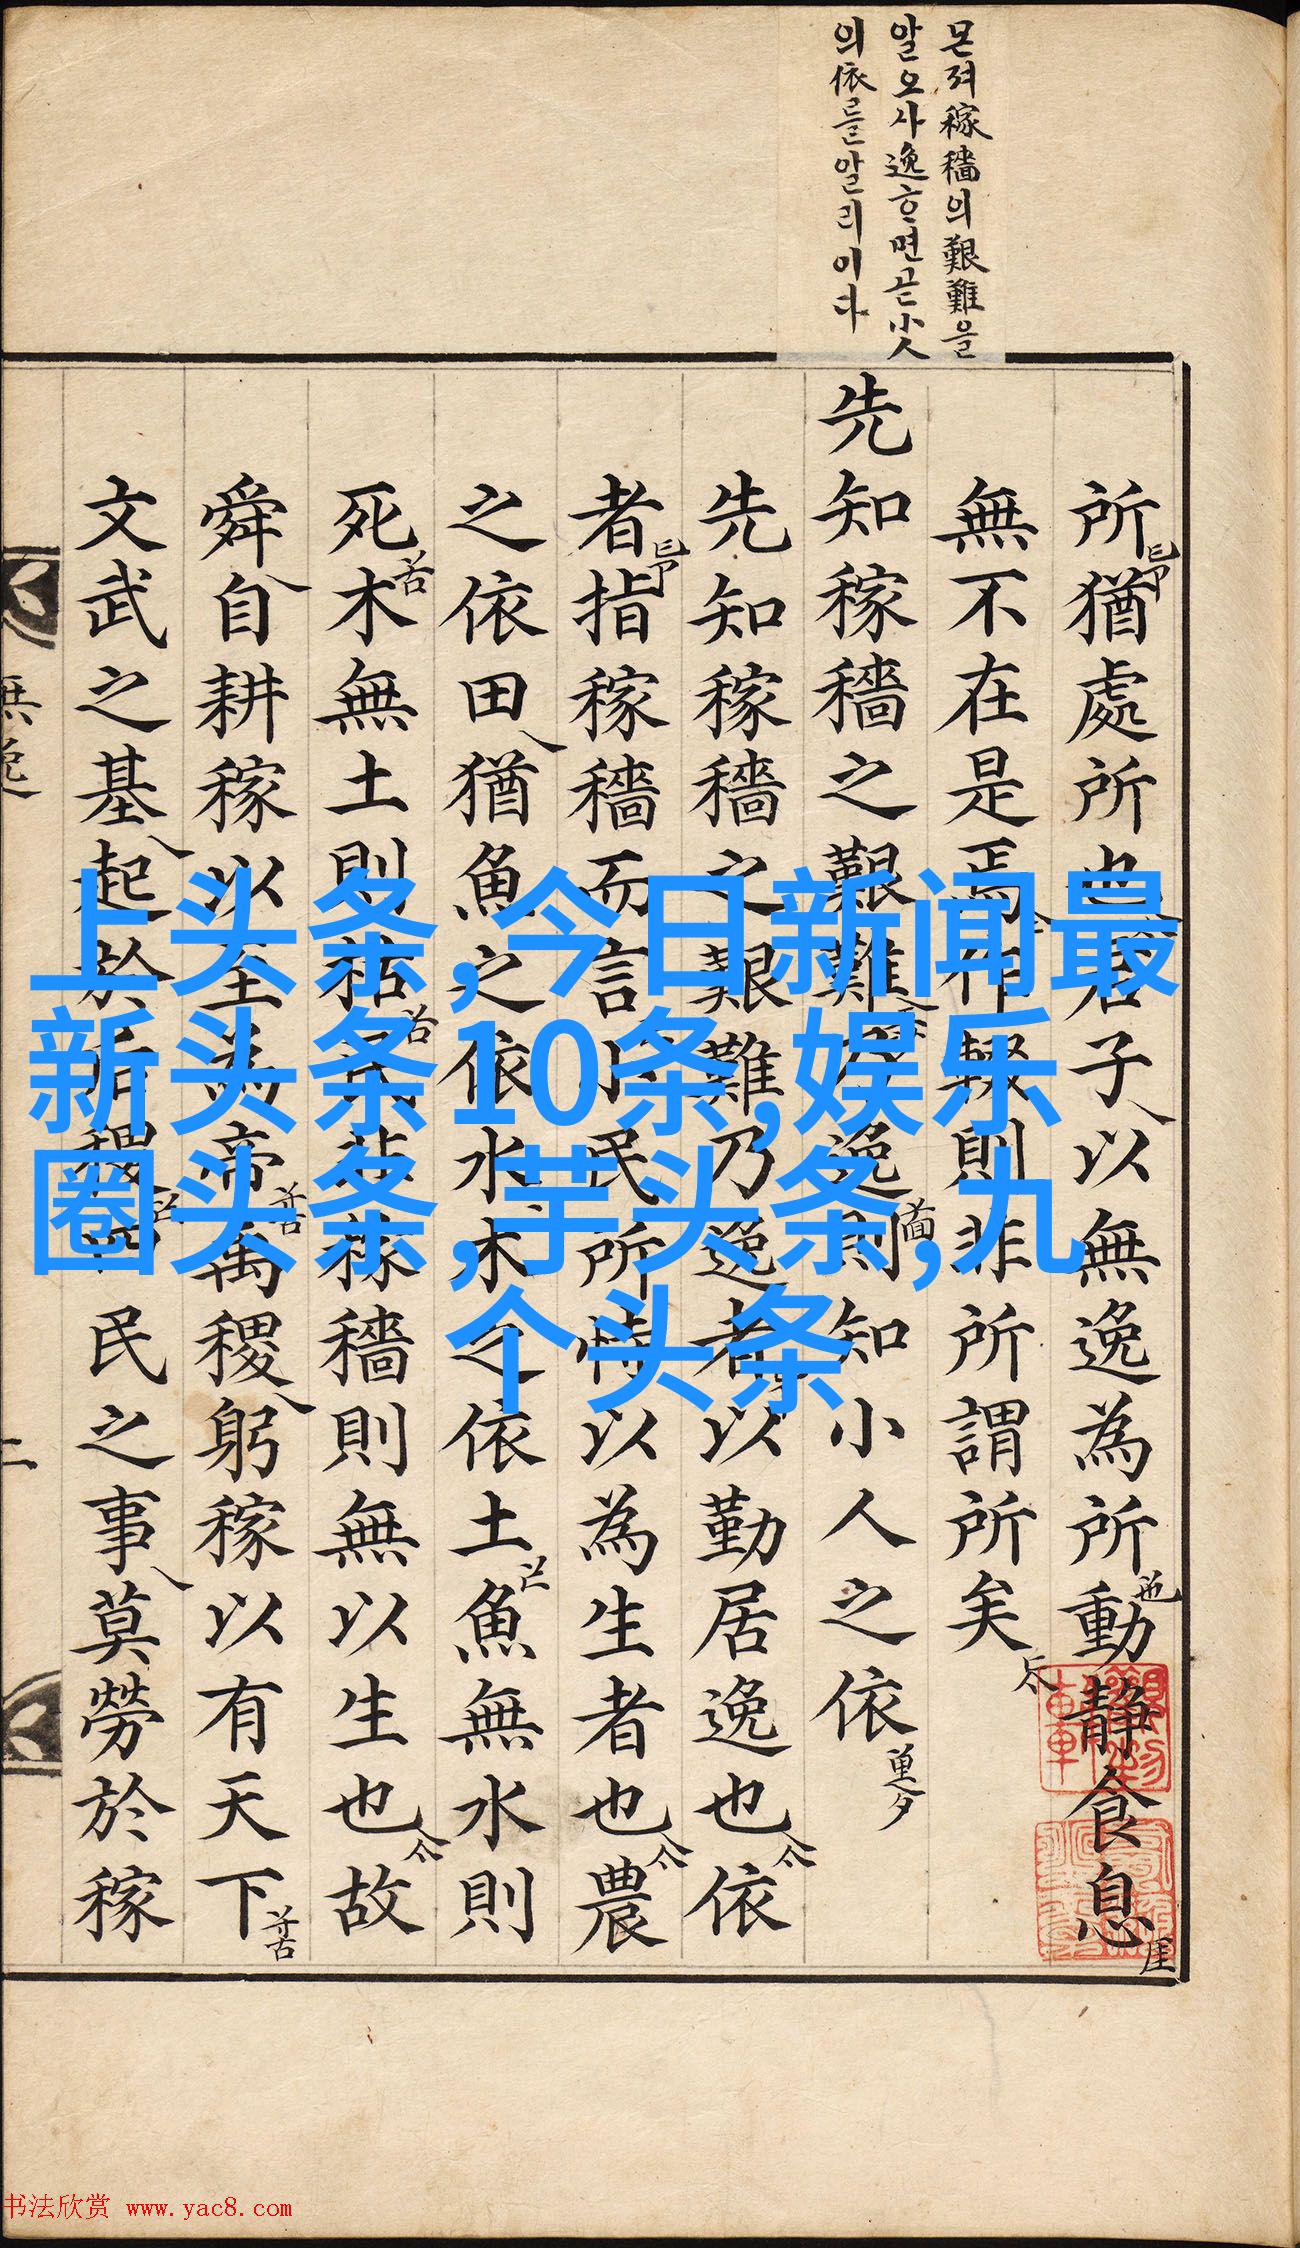 몬져稼穡의艱難을
알오사逸ᄒᆞ면곧小人
의依를알리이다
所猶處所也君子以無逸為所動静食息
無不在是焉作輟則非所謂所矣
先知稼穡之艱難乃逸則知小人之依
先知稼穡之艱難乃逸者以勤居逸也依
者指稼穡而言小民所恃以為生者也農
之依田猶魚之依水木之依土魚無水則
死木無土則枯民非稼穡則無以生也故
舜自耕稼以至為帝禹稷躬稼以有天下
文武之基起於后稷民之事莫勞於稼
無逸
二
上头条,今日新闻最
新头条10条,娱乐
圈头条,芋头条,九
个头条
书法欣赏 www.yac8.com